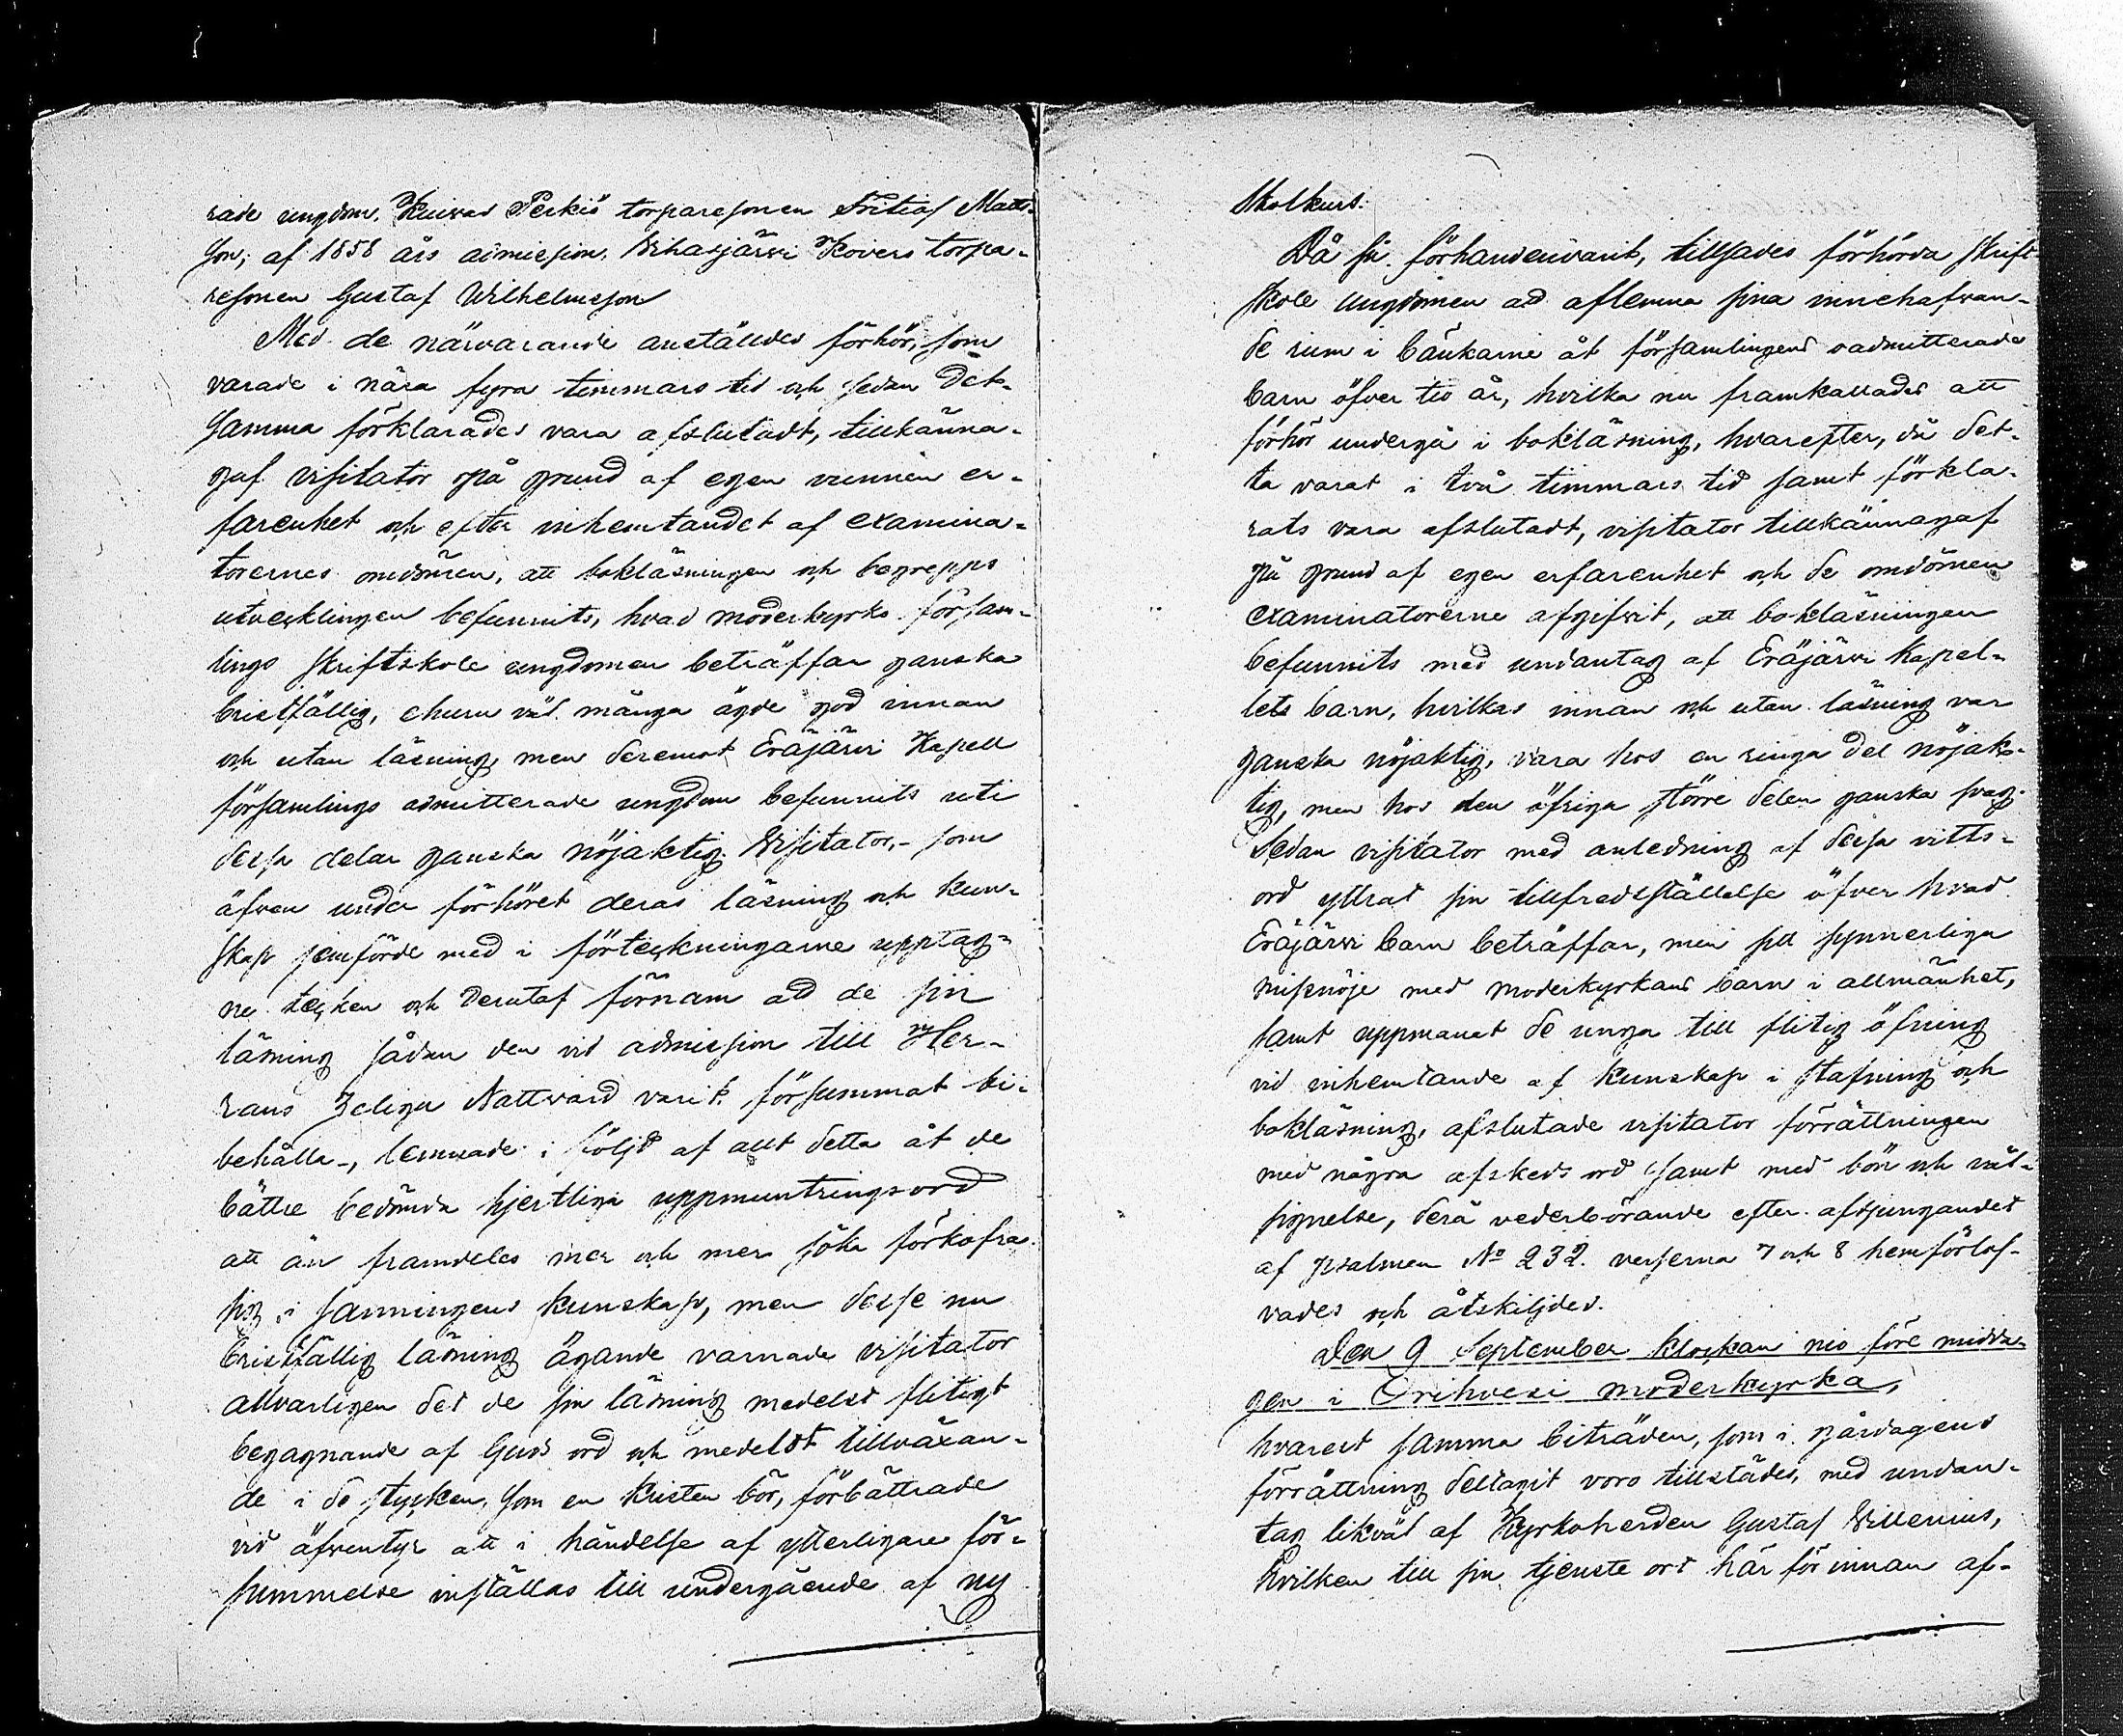 rade ungdom. Kuivas Perkiö torparesonen Fritiof Matts-
son, af 1858 års admission. Vihasjärvi Kovers torpa-
resonen Gustaf Wilhelmsson
Med de närvarande anställdes förhör, som
varade i nära fyra timmars tid och sedan det-
samma förklarades vara afslutadt, tillkänna-
gaf visitator på grund af egen vunnen er-
farenhet och efter inhemtandet af examina-
torernes omdömen, att bokläsningen och begrepps
utvecklingen befunnits, hvad moderkyrko försam-
lings skriftskole ungdomen beträffar ganska
bristfällig, churu väl många ägde god innan
och utan läsning, men deremot Eräjärvi Kapell
församlings admitterade ungdom befunnits uti
dessa delar ganska nöjaktig. Visitator, - som
äfven under förhöret deras läsning och kun-
skap jemförde med i förteckningarne upptag-
ne tecken och derutaf förnam att de sin
läsning sådan den vid admission till Her-
rans Heliga Nattvard varit, försummat bi-
behålla -, lemnade i följd af allt detta åt de
bättre bedömda hjertliga uppmuntringsord
att än framdeles mer och mer söka förkofra
sig i sanningens kunskap, men desse nu
bristfällig läsning ägande varnade visitator
allvarligen det de sin läsning medelst flitigt
begagnande af Guds ord och medelst tillväxan-
de i de stycken, som en kristen bör, förbättrade
vid äfventyr att i händelse af ytterligare för-
summelse inställas till undergående af ny
Skolkurs.
Då så förhandenvarit, tillsades förhörda skrift-
skole ungdomen att aflemna sina innehafvan-
de rum i bänkarne åt församlingens oadmitterade
barn öfver tio år, hvilka nu framkallades att
förhör undergå i bokläsning, hvarefter, då det-
ta varat i två timmars tid samt förkla-
rats vara afslutadt, visitator tillkännagaf
på grund af egen erfarenhet och de omdömen
examinatorerne afgifvit, att bokläsningen
befunnits med undantag af Eräjärvi Kapel-
lets barn, hvilkas innan och utan läsning var
ganska nöjaktig, vara hos en ringa del nöjak-
tig, men hos den öfriga större delen ganska svag.
Sedan visitator med anledning af dessa vitts-
ord yttrat sin tillfredsställelse öfver hvad
Eräjärvi barn beträffar, men sitt synnerliga
missnöje med moderkyrkans barn i allmänhet,
samt uppmanat de unga till flitig öfning
vid inhemtande af kunskap i stafning och
bokläsning, afslutade visitator förrättningen
med några afskeds ord samt med bön och väl-
signelse, derå vederbörande efter afsjungandet
af psalmen No 232. verserna 7 och 8 hemförlof-
vades och åtskiljdes.
Den 9 September klockan nio före midda-
gen i Orihvesi moderkyrka,
hvarest samma biträden, som i gårdagens
förrättning deltagit voro tillstädes, med undan-
tag likväl af Kyrkoherden Gustaf Willenius,
hvilken till sin tjenste ort här för innan af-